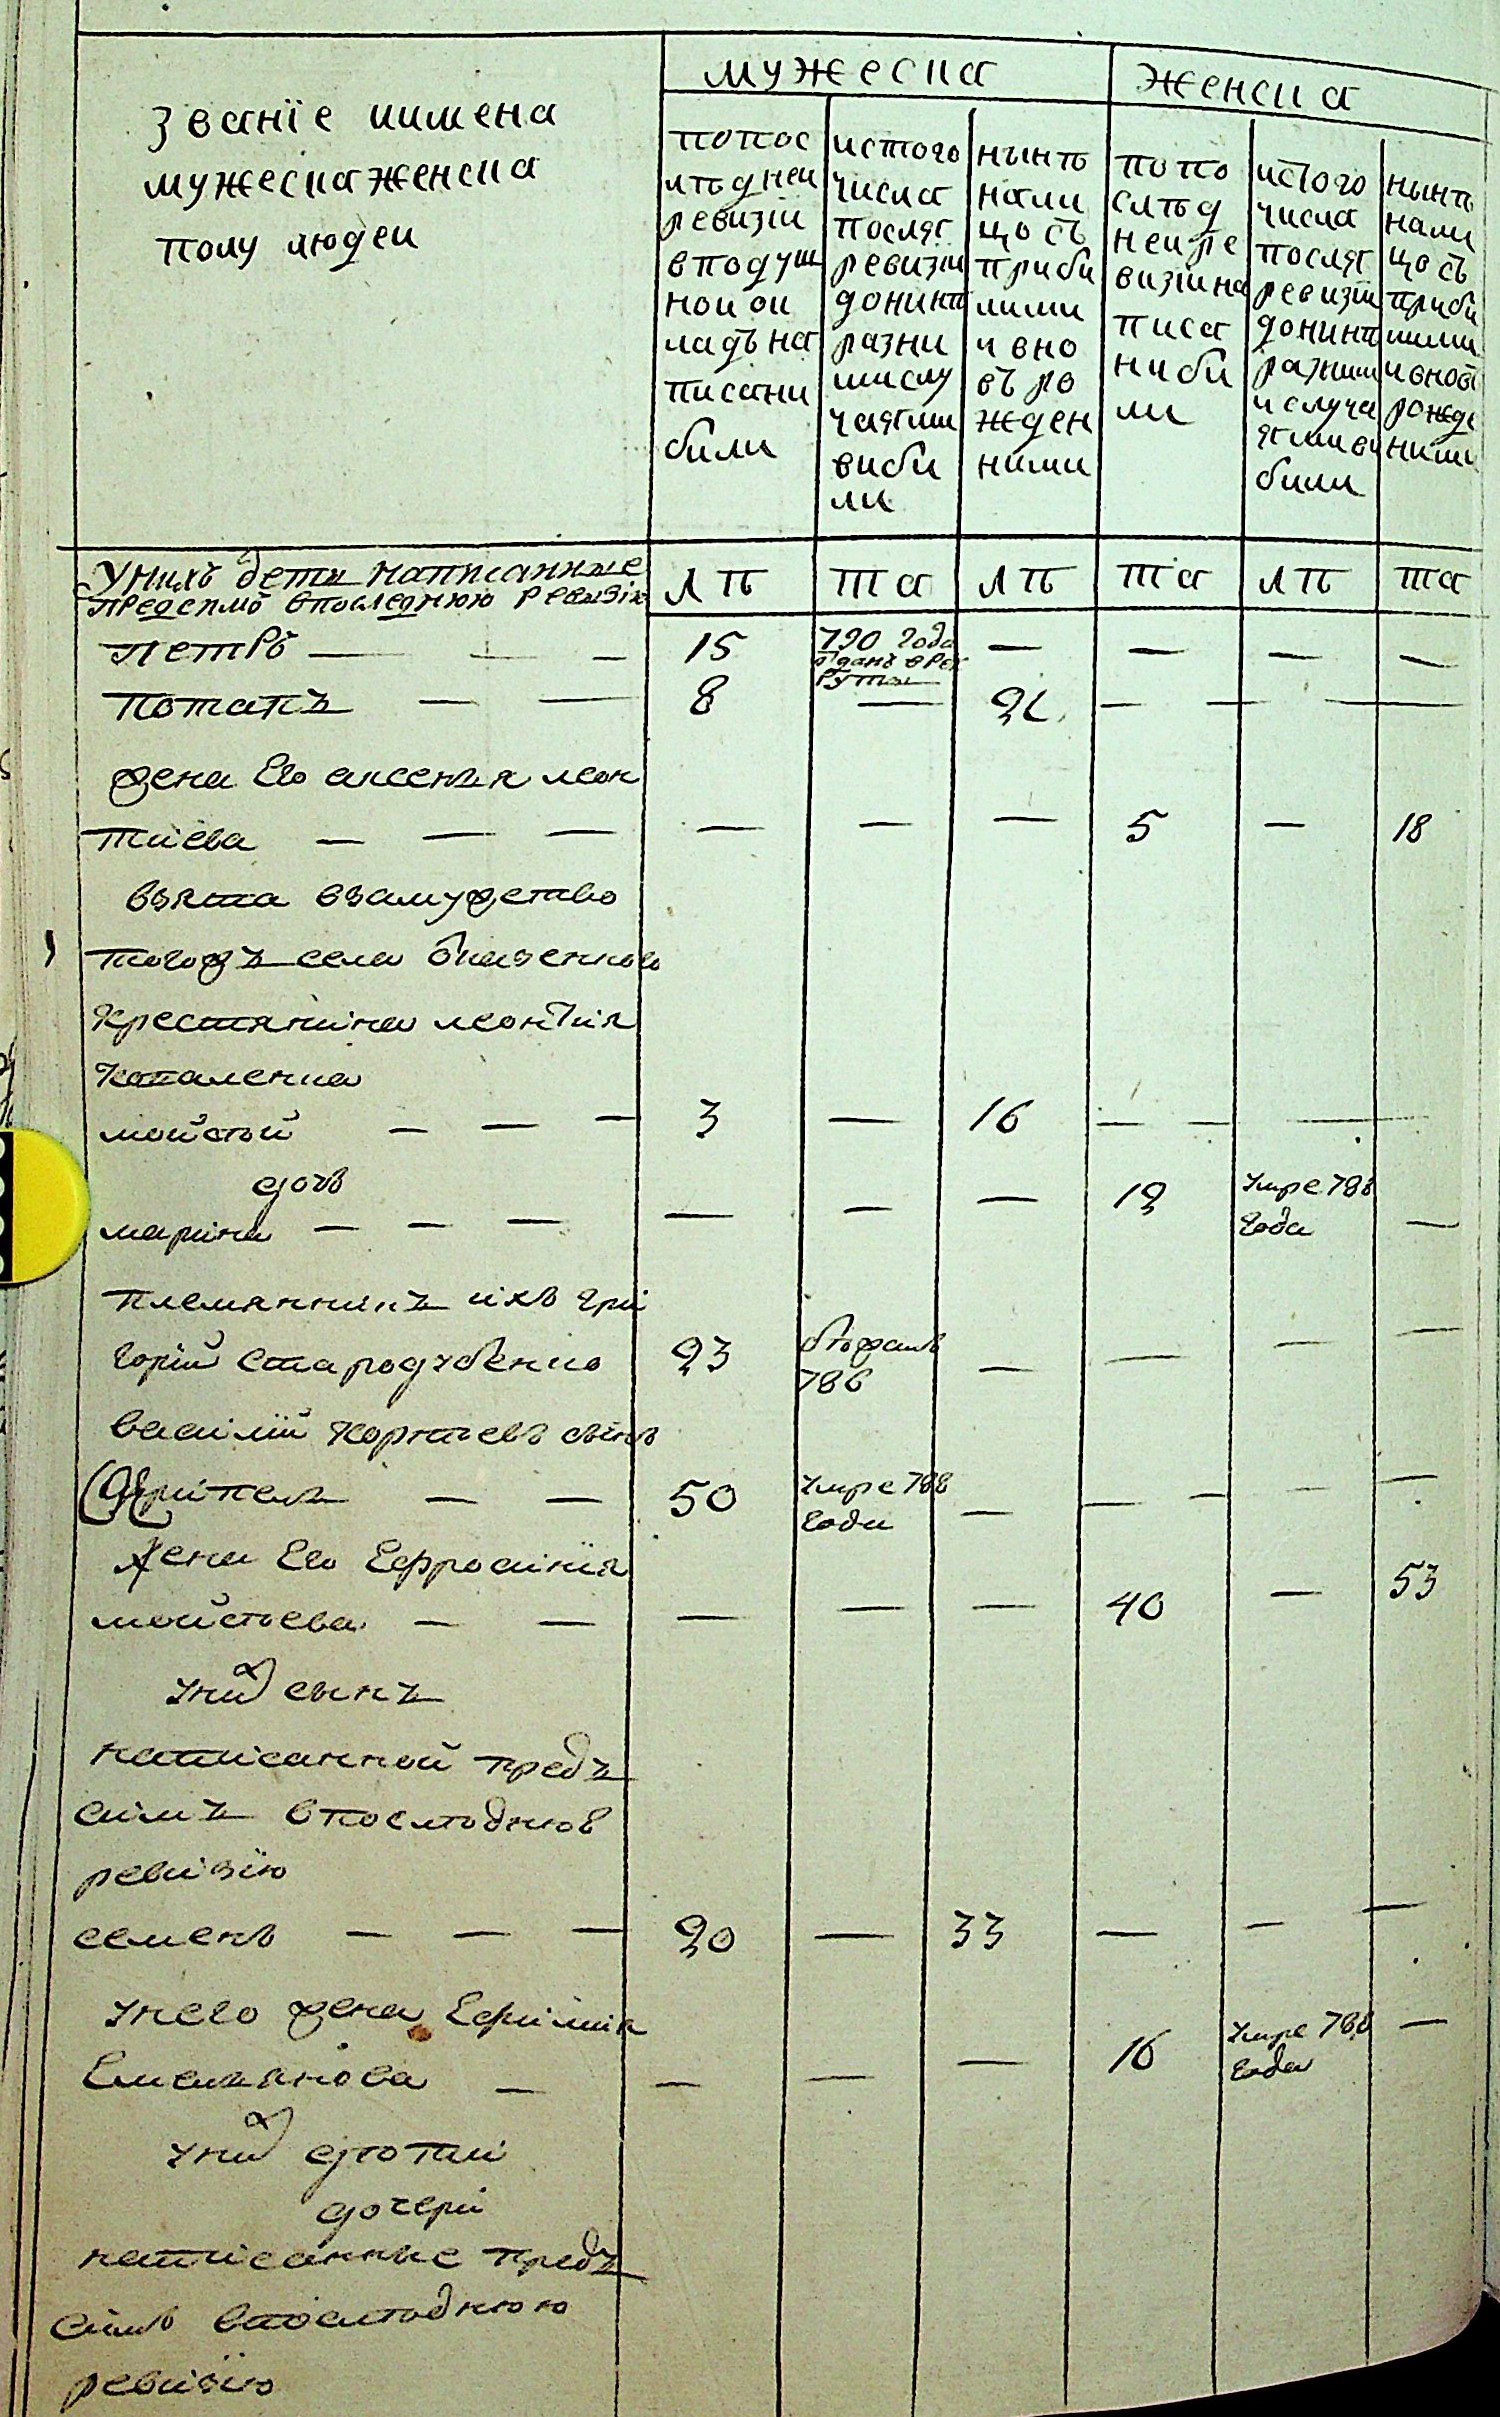 мужеска
женска
званїе иимена
мужеска женска
полу людеи
попос
лѣднеи
ревизїи
вподуш
нои ок
ладъ на
писани
били
истого
числа
послѧ
ревизїи
донинѣ
разни
мислу
чаѧми
виби
ли
нынѣ
нали
цо съ
приби
лими
и вно
въ ро
жден
ними
попо
слѣд
неи ре
визїи на
писа
ни би
ли
истого
числа
послѧ
ревизїи
донинѣ
разними
и случа
ѧми ви
били
нынѣ
нали
цо съ
приби
лими
и вновъ
рожде
ними
Унихъ дети написанные
предсимъ впоследнюю ревизїю
лѣ та лѣ та лѣ та
петръ — — 15 790 года — — — —
отданъ врек
руты
потапъ — — 8 — 21 — — — —
жена Его аксенья леон
тиева — — — — — — 5 — 18
взята взамужство
тогожъ села казенного
крестянина леонтия
коваленка
мойсѣй — — — 3 — 16 — — —
дочь
марина — — — — — — 12 умре 788 —
года
племянникъ ихъ гри
горїй стародубенко 23 бѣжалъ — — — —
786
василїй корнѣевъ сынъ
умре 788
50 — — — — —
года
жена Его Ефросинїя
мойсѣева — — — — — 40 — 53
уних сынъ
написанной предъ
симъ впослѣднюю
ревизїю
семенъ — — — 20 — 33 — — —
унего жена Ефимия
Емельянова — — — — 16 умре 788 —
года
уних
дочери
написанные предъ
симъ впослѣднюю
ревизїю